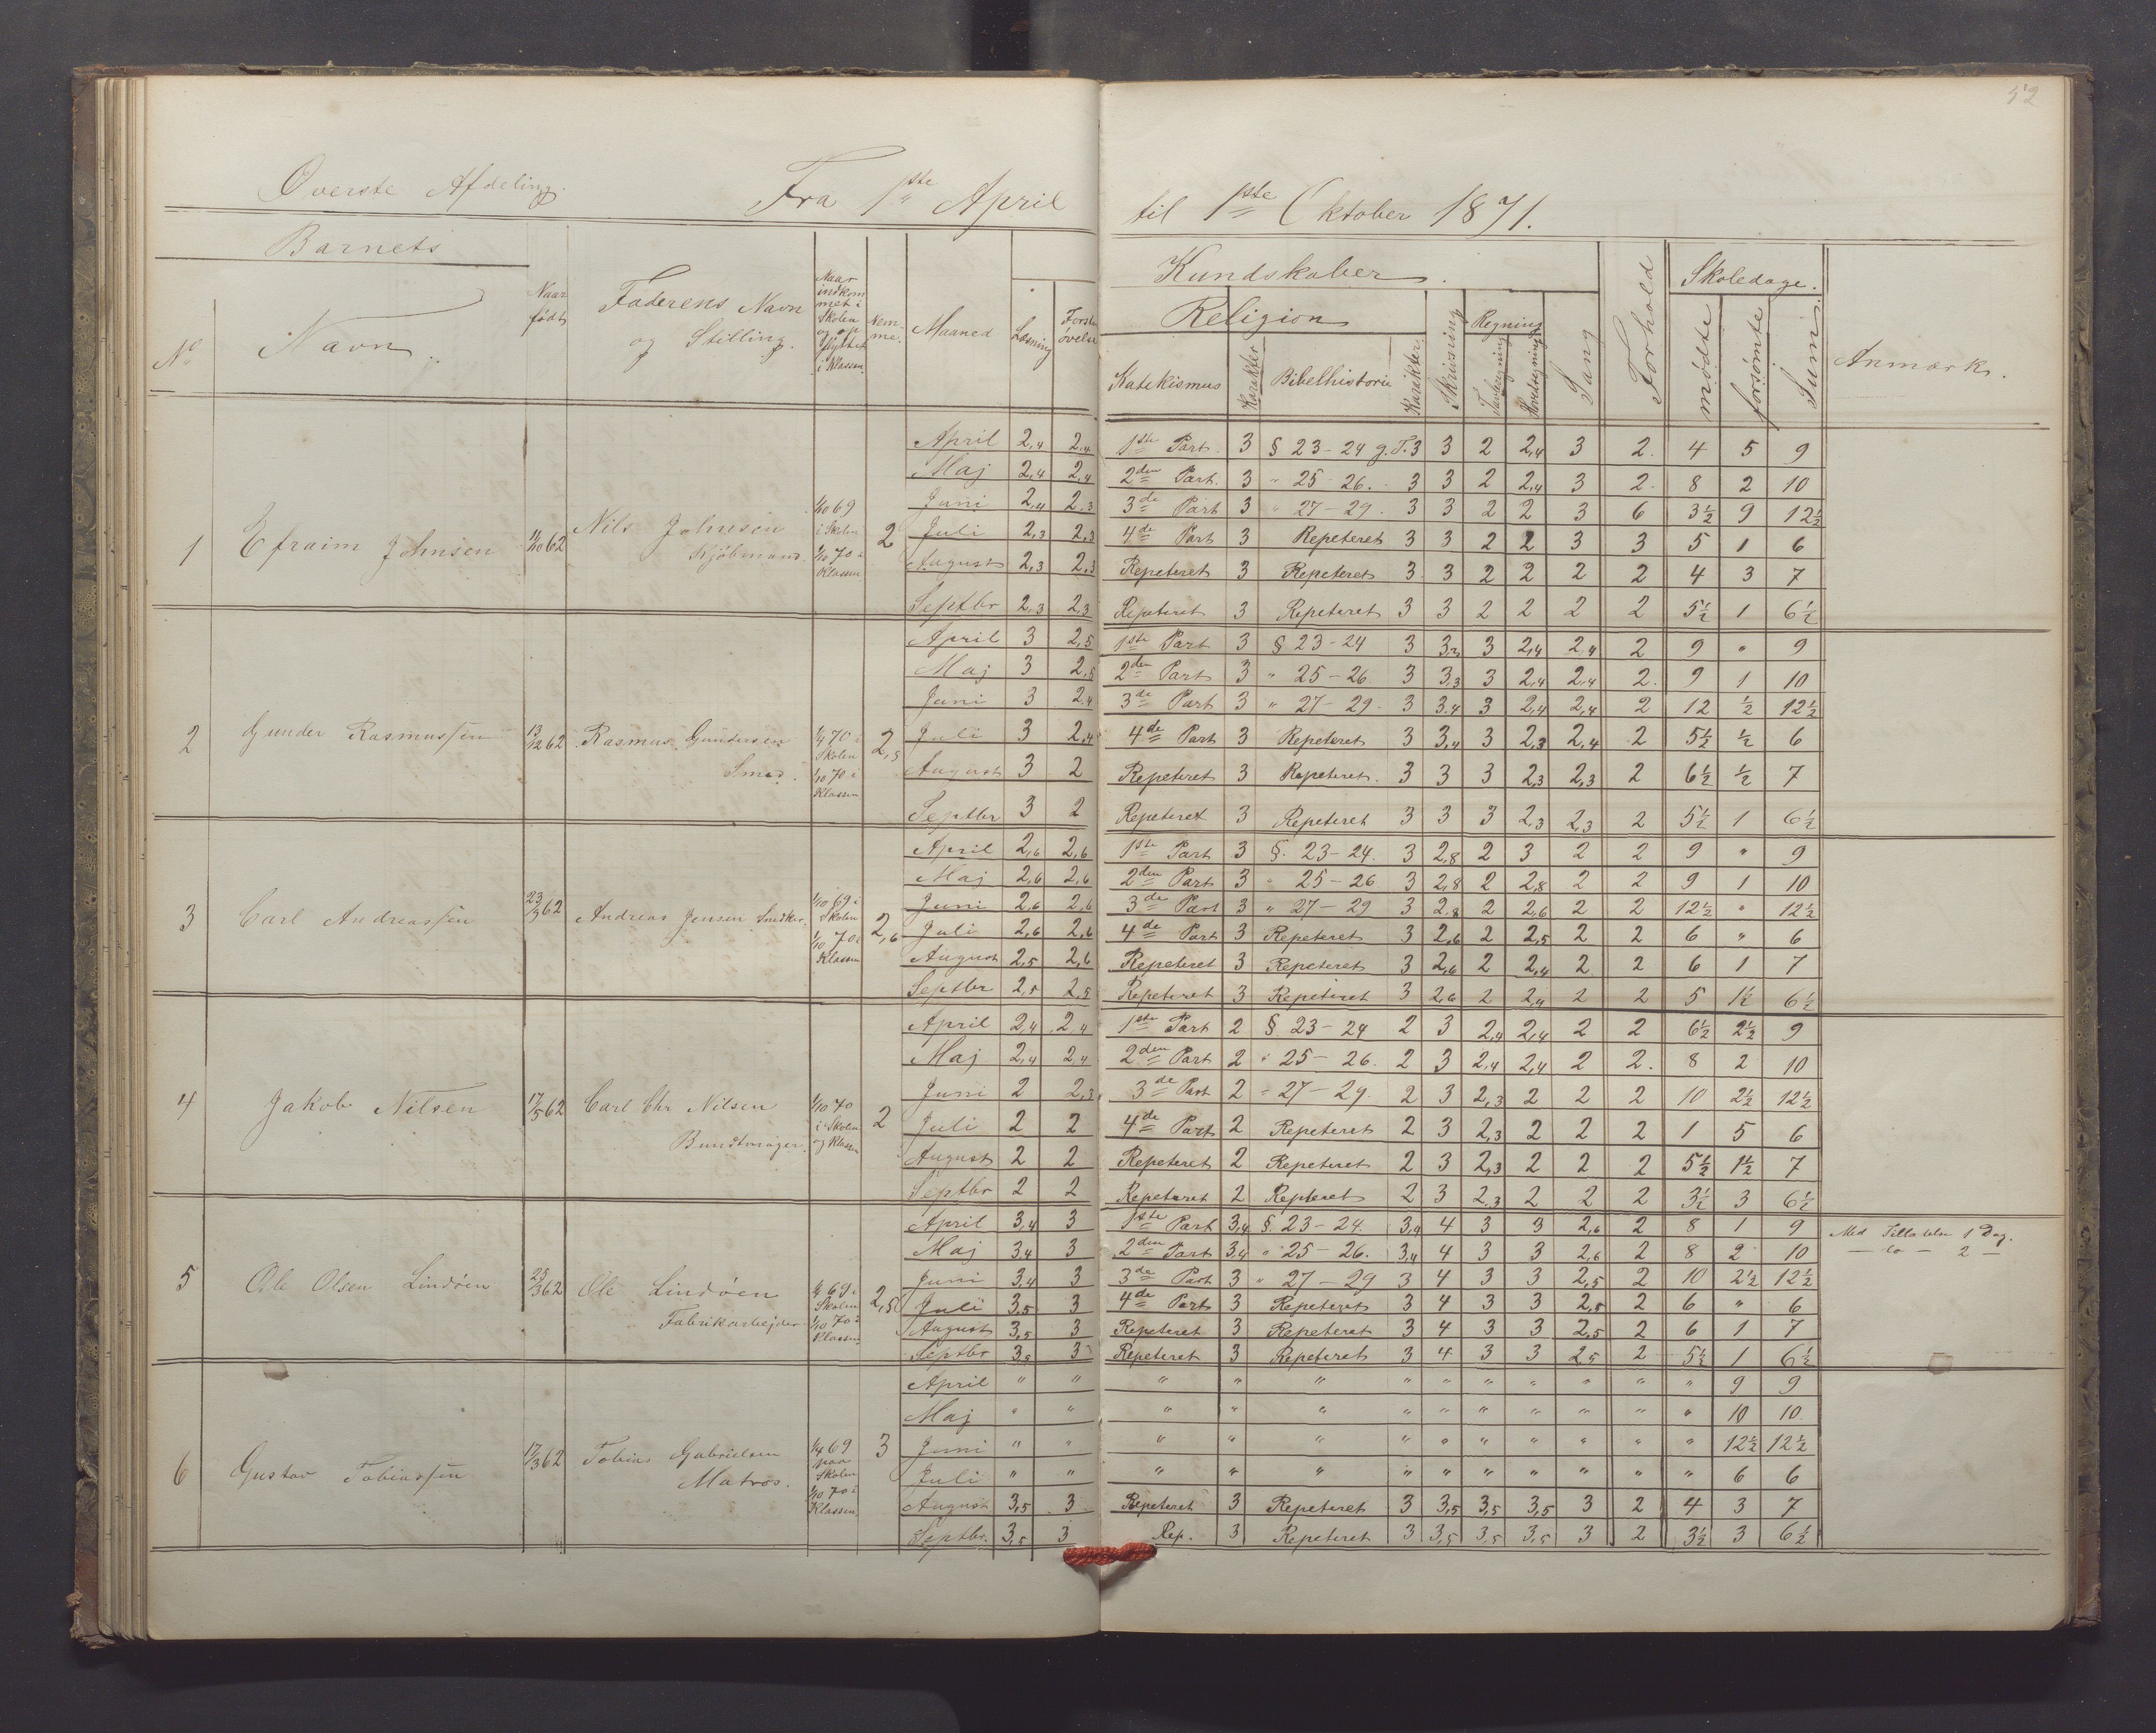 52
Overste Afdeling. Fra 1ste April til 1ste Oktober 1871.
Barnets Kundskaber. Skoledage.
No Navn Naar født Faderens Navn og Stilling. Naar indkommet i Skolen og opflyttet i Klassen. Nemme. Maaned Læsning Forst. øvelse Religion Katekismus Karakter Bibelhistorie Karakter Skrivning Regning Tavleregning Hovedregning Sang Forhold mødte forsømte Sum Anmærk.
1 Efraim Johnsen 11/10 62 Nils Johnsen Kjöbmand. 1/10 69 i Skolen 1/10 70 i Klassen 2
April 2,4 2,4 1ste Part. 3 § 23-24 g. T. 3 3 2 2,4 3 2. 4 5 9
Maj 2,4 2,4 2den Part. 3 " 25-26. 3 3 2 2,4 3 2. 8 2 10
Juni 2,4 2,3 3de Part 3 " 27-29. 3 3 2 2 3 6 3½ 9 12½
Juli 2,3 2,3 4de Part 3 Repeteret 3 3 2 2 3 3 5 1 6
August 2,3 2,3 Repeteret 3 Repeteret 3 3 2 2 2 2 4 3 7
Septbr 2,3 2,3 Repeteret 3 Repeteret 3 3 2 2 2 2 5½ 1 6½
2 Gunder Rasmussen 13/12 62 Rasmus Gundersen Smed. 1/4 70 i Skolen 1/10 70 i Klassen 2,5
April 3 2,5 1ste Part 3 § 23-24 3 3,3 3 2,4 2,4 2 9 " 9
Maj 3 2,5 2den Part 3 " 25-26 3 3,3 3 2,4 2,4 2. 9 1 10
Juni 3 2,4 3de Part 3 " 27-29. 3 3,4 3 2,4 2,4 2 12 ½ 12½
Juli 3 2,4 4de Part 3 Repeteret 3 3,4 3 2,3 2,4 2 5½ ½ 6
August 3 2 Repeteret 3 Repeteret. 3 3 3 2,3 2,3 2 6½ ½ 7
Septbr 3 2 Repeteret 3 Repeteret 3 3 3 2,3 2,3 2 5½ 1 6½
3 Carl Andreassen 23/3 62 Andreas Jensen Snedker. 1/10 69 i Skolen 1/10 70 i Klassen 2,6
April 2,6 2,6 1ste Part 3 §. 23-24. 3 2,8 2 3 2 2 9 " 9
Maj 2,6 2,6 2den Part 3 " 25-26 3 2,8 2 2,8 2 2 9 1 10
Juni 2,6 2,6 3de Part 3 " 27-29 3 2,8 2 2,6 2 2 12½ " 12½
Juli 2,6 2,6 4de Part 3 Repeteret 3 2,6 2 2,5 2 2 6 " 6
August 2,5 2,6 Repeteret 3 Repeteret 3 2,6 2 2,4 2 2 6 1 7
Septbr 2,5 2,5 Repeteret 3 Repeteret 3 2,6 2 2,4 2 2 5 1½ 6½
4 Jakob Nilsen 17/5 62 Carl Chr Nilsen Bundtmager. 1/10 70 i Skolen og Klassen 2
April 2,4 2,4 1ste Part 2 § 23-24 2 3 2,4 2,4 2 2 6½ 2½ 9
Maj 2,4 2,4 2den Part 2 " 25-26. 2 3 2,4 2,4 2 2. 8 2 10
Juni 2 2,3 3de Part 2 " 27-29. 2 3 2,3 2 2 2 10 2½ 12½
Juli 2 2 4de Part 2 Repeteret 2 3 2,3 2 2 2 1 5 6
August 2 2 Repeteret 2 Repeteret 2 3 2,3 2 2 2 5½ 1½ 7
Septbr 2 2 Repeteret 2 Repteret 2 3 2,3 2 2 2 3½ 3 6½
5 Ole Olsen Lindöen 25/3 62 Ole Lindöen Fabrikarbejder 69 i Skolen 1/10 70 i Klassen 2,5
April 3,4 3 1ste Part 3,4 § 23-24. 3,4 4 3 3 2,6 2 8 1 9 Med Tilladelse 1 Dag.
Maj 3,4 3 2den Part 3,4 " 25-26. 3,4 4 3 3 2,6 2 8 2 10 — do — 2 —
Juni 3,4 3 3de Part 3 " 27-29 3 4 3 3 2,5 2 10 2½ 12½
Juli 3,5 3 4de Part 3 Repeteret 3 4 3 3 2,5 2 6 " 6
August 3,5 3 Repeteret 3 Repeteret 3 4 3 3 2,5 2 6 1 7
Septbr 3,5 3 Repeteret 3 Repeteret 3 4 3 3 2,5 2 5½ 1 6½
6 Gustav Tobiassen 17/3 62 Tobias Gabrielsen Matros. 1/4 69 paa Skolen 1/10 70 i Klassen 3
April " " " " " " " " " " " " 9 9
Maj " " " " " " " " " " " " 10 10
Juni " " " " " " " " " " " " 12½ 12½
Juli " " " " " " " " " " " " 6 6
August 3,5 3 Repeteret 3 Repeteret 3 3,5 3,5 3,5 3 2 4 3 7
Septbr. 3,5 3 Rep. 3 Repeteret 3 3,5 3,5 3,5 3 2 3½ 3 6½